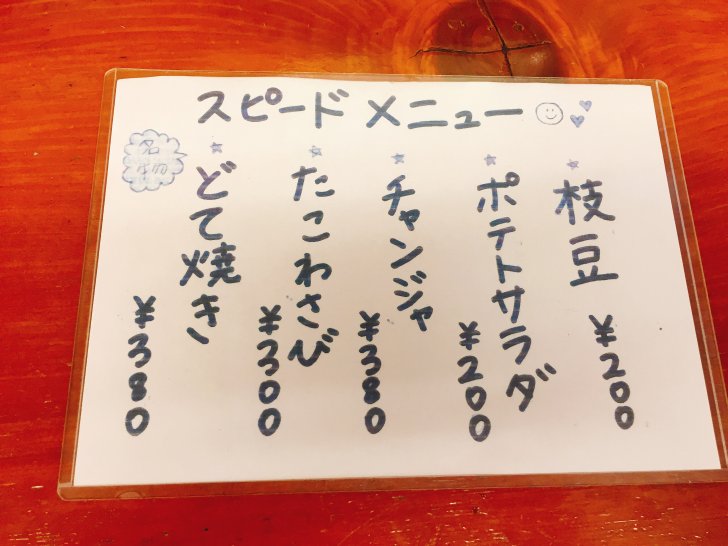 スピードメニュー
枝豆
¥200
ポテトサラダ
¥200
チャンジャ
¥380
たこわさび
¥300
名物
どて焼き
¥380